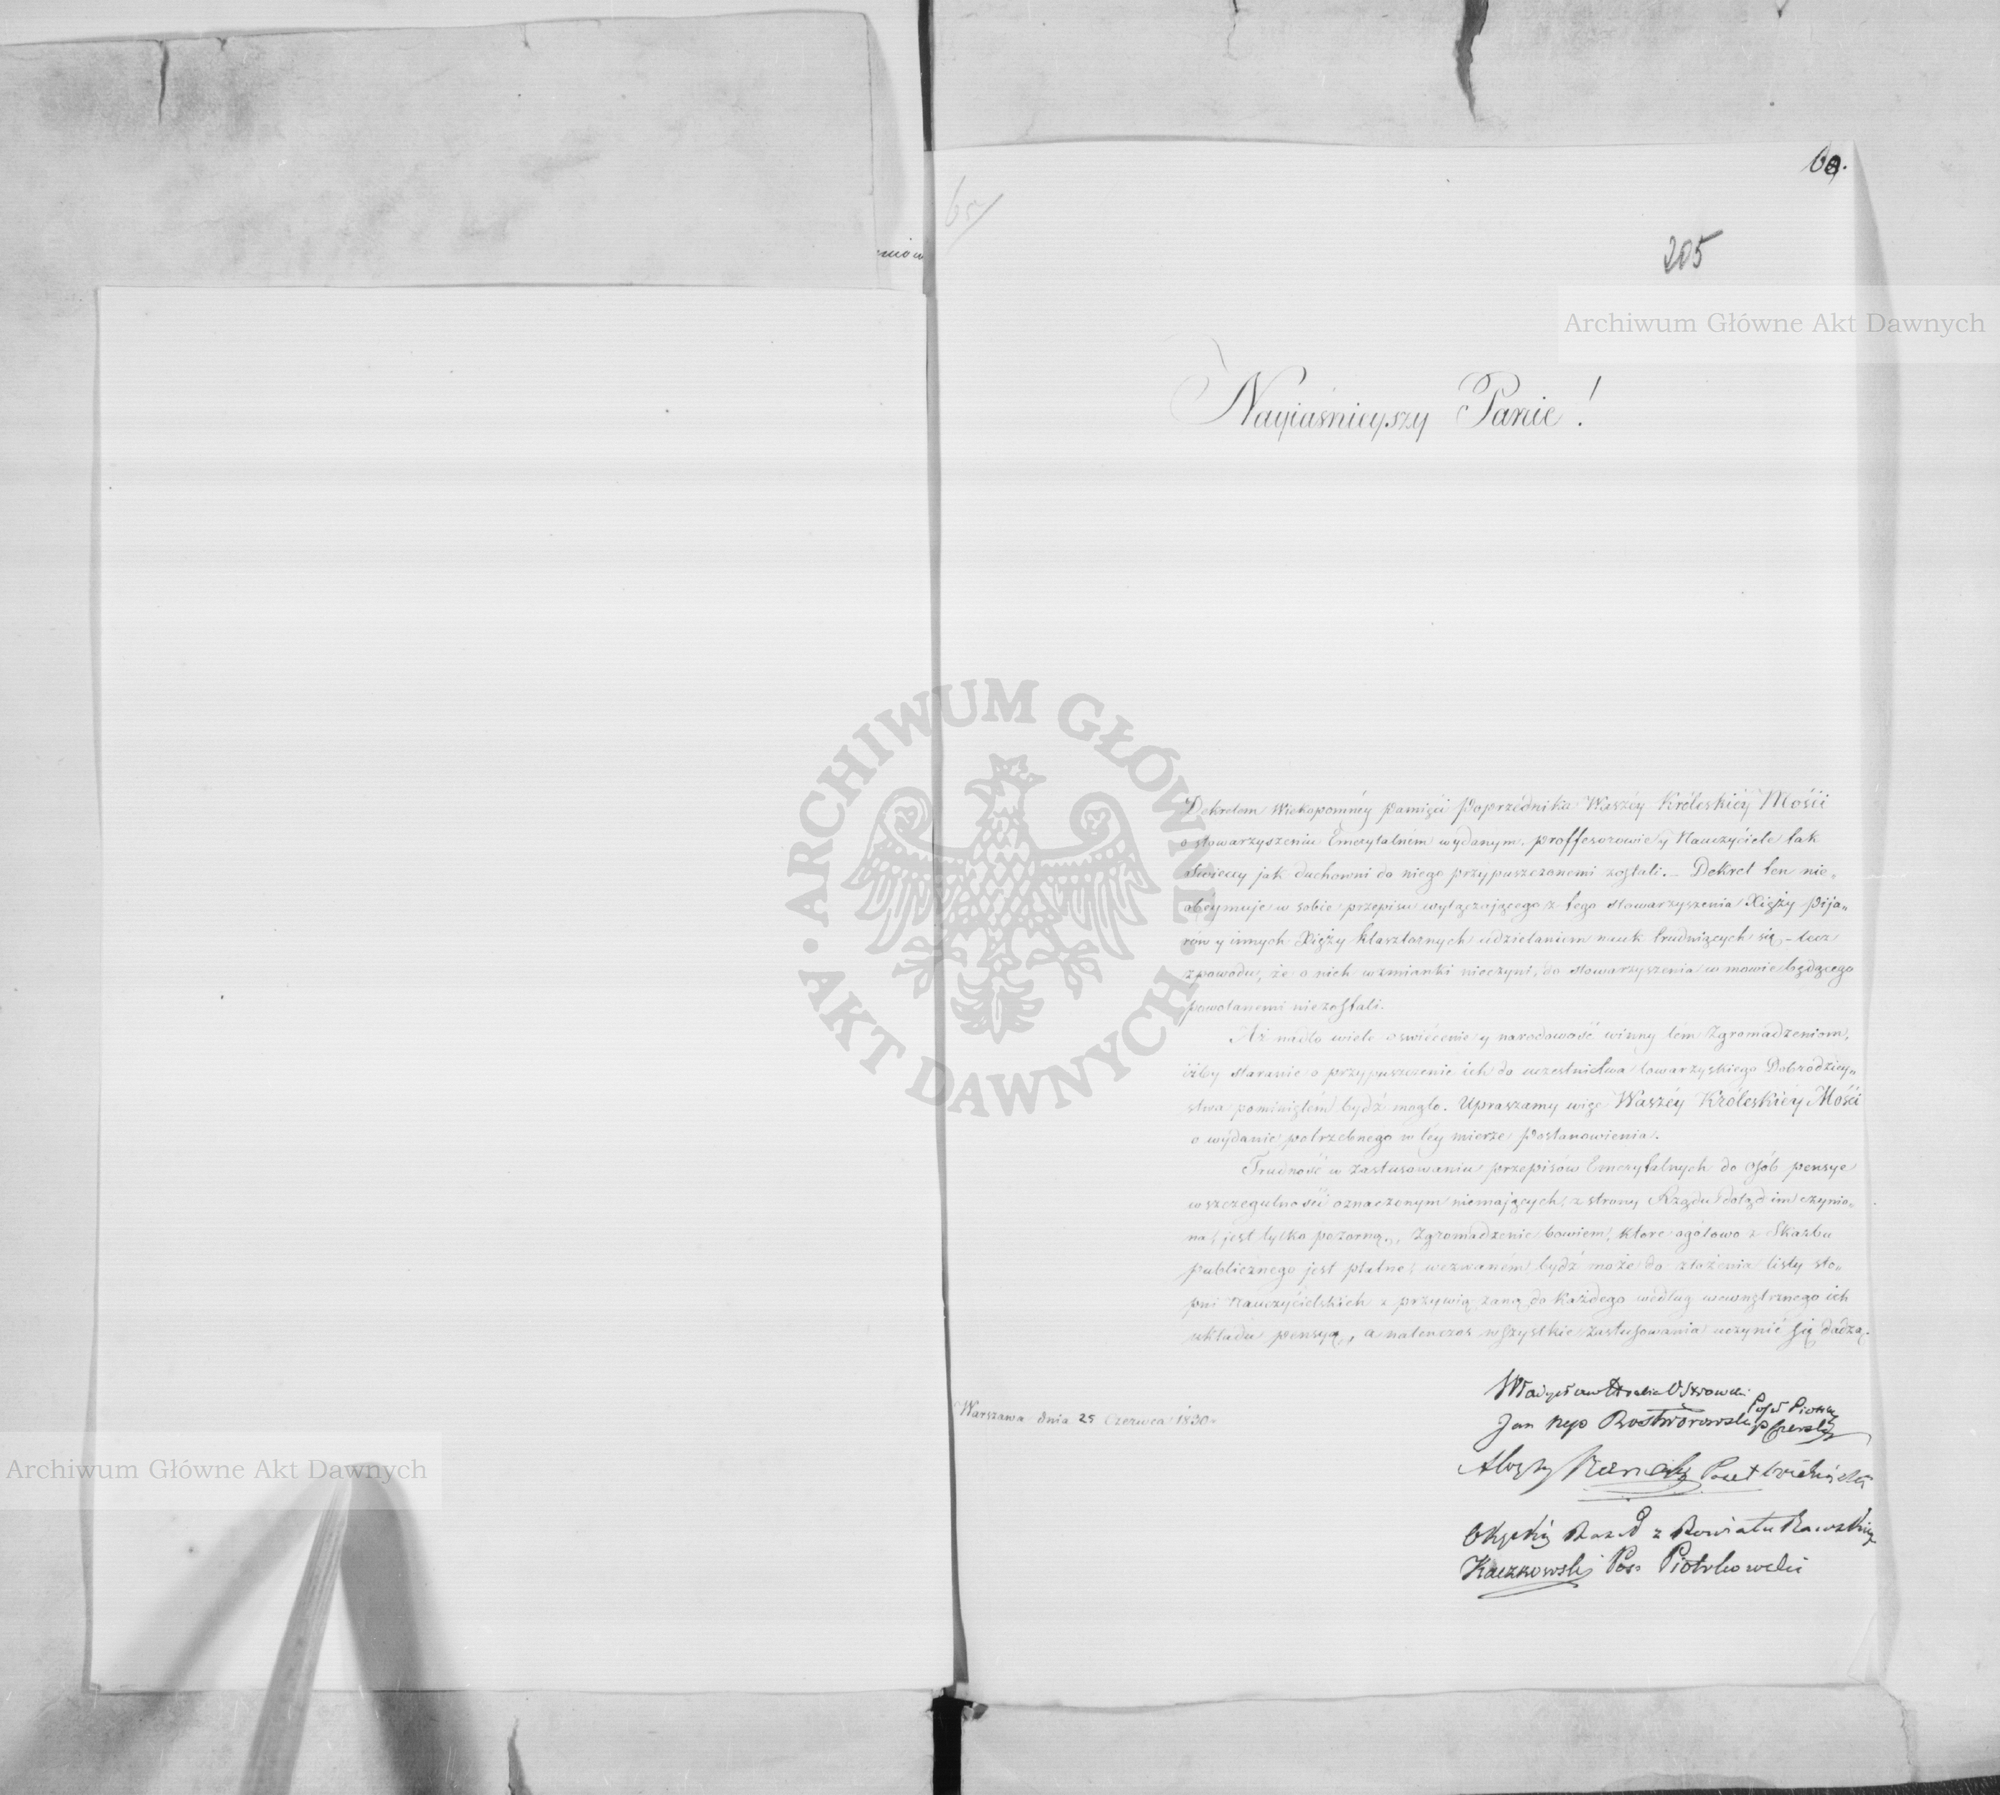 205
Nayiaśnieyszy Panie!
Dekretem Wiekopomnéy Pamięci Poprzédnika Waszéy Króleskiéy Mości
o stowarzyszeniu Emerytalném wydanym, proffesorowie y Nauczyciele tak
świeccy jak duchowni do niego przypuszczonemi zostali. – Dekret ten nie„
obéymuje w sobie przepisu wyłączającego z tego stowarzyszenia Xięży Pija„
rów y innych Xięży klasztornych udzielaniem nauk trudniących się – lecz
z powodu, że o nich wzmianki nieczyni, do stowarzyszenia w mowie będącego
powołanemi niezostali.
Aż nadto wiele oświécenie y narodowość winny tém Zgromadzeniom,
iżby staranie o przypuszczenie ich do uczestnictwa towarzyskiego Dobrodziey„
stwa pominiętém bydź mogło. Upraszamy więc Waszéy Króleskiéy Mości
o wydanie potrzebnego w téy mierze Postanowienia.
Trudność w zastusowaniu przepisów Emerytalnych do osób pensye
w szczegulności oznaczonym niemających, z strony Rządu dotąd im czynio„
na, jest tylko pozorną, Zgromadzenie bowiem, które ogółowo z Skarbu
publicznego jest płatne, wezwaném bydź może do złożenia listy sto„
pni Nauczycielskich z przywiązaną do każdego według wewnętrznego ich
układu pensyą, a natenczas wszystkie zastusowania uczynić się dadzą.
Warszawa dnia 25 Czerwca 1830
Władysław Hrabia Ostrowski Poseł Piotrk
Jan Nep Rostworowski
Poseł z Powiatu Rawskiego
Kaczkowski Pos Piotrkowski
Archiwum Główne Akt Dawnych
Archiwum Główne Akt Dawnych
ARCHIWUM GŁÓWNE AKT DAWNYCH